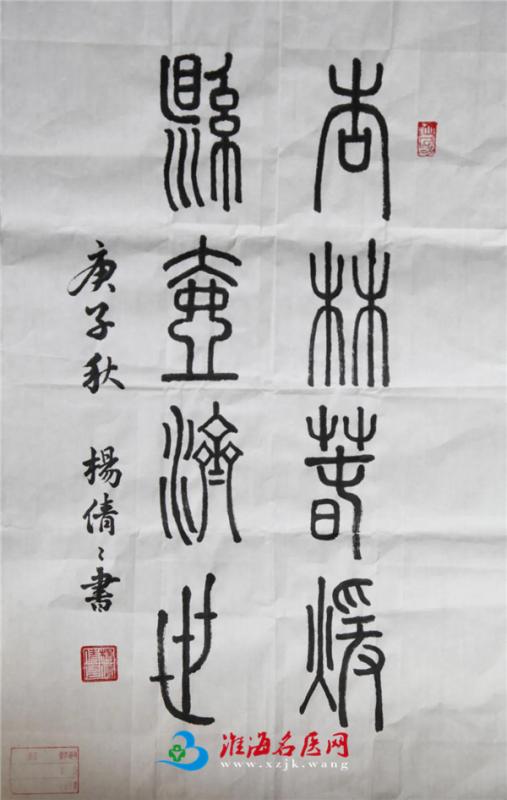 杏林春暖
縣壺濟世
庚子秋 楊倩〻書
淮海名医网
www.xzjk.wang